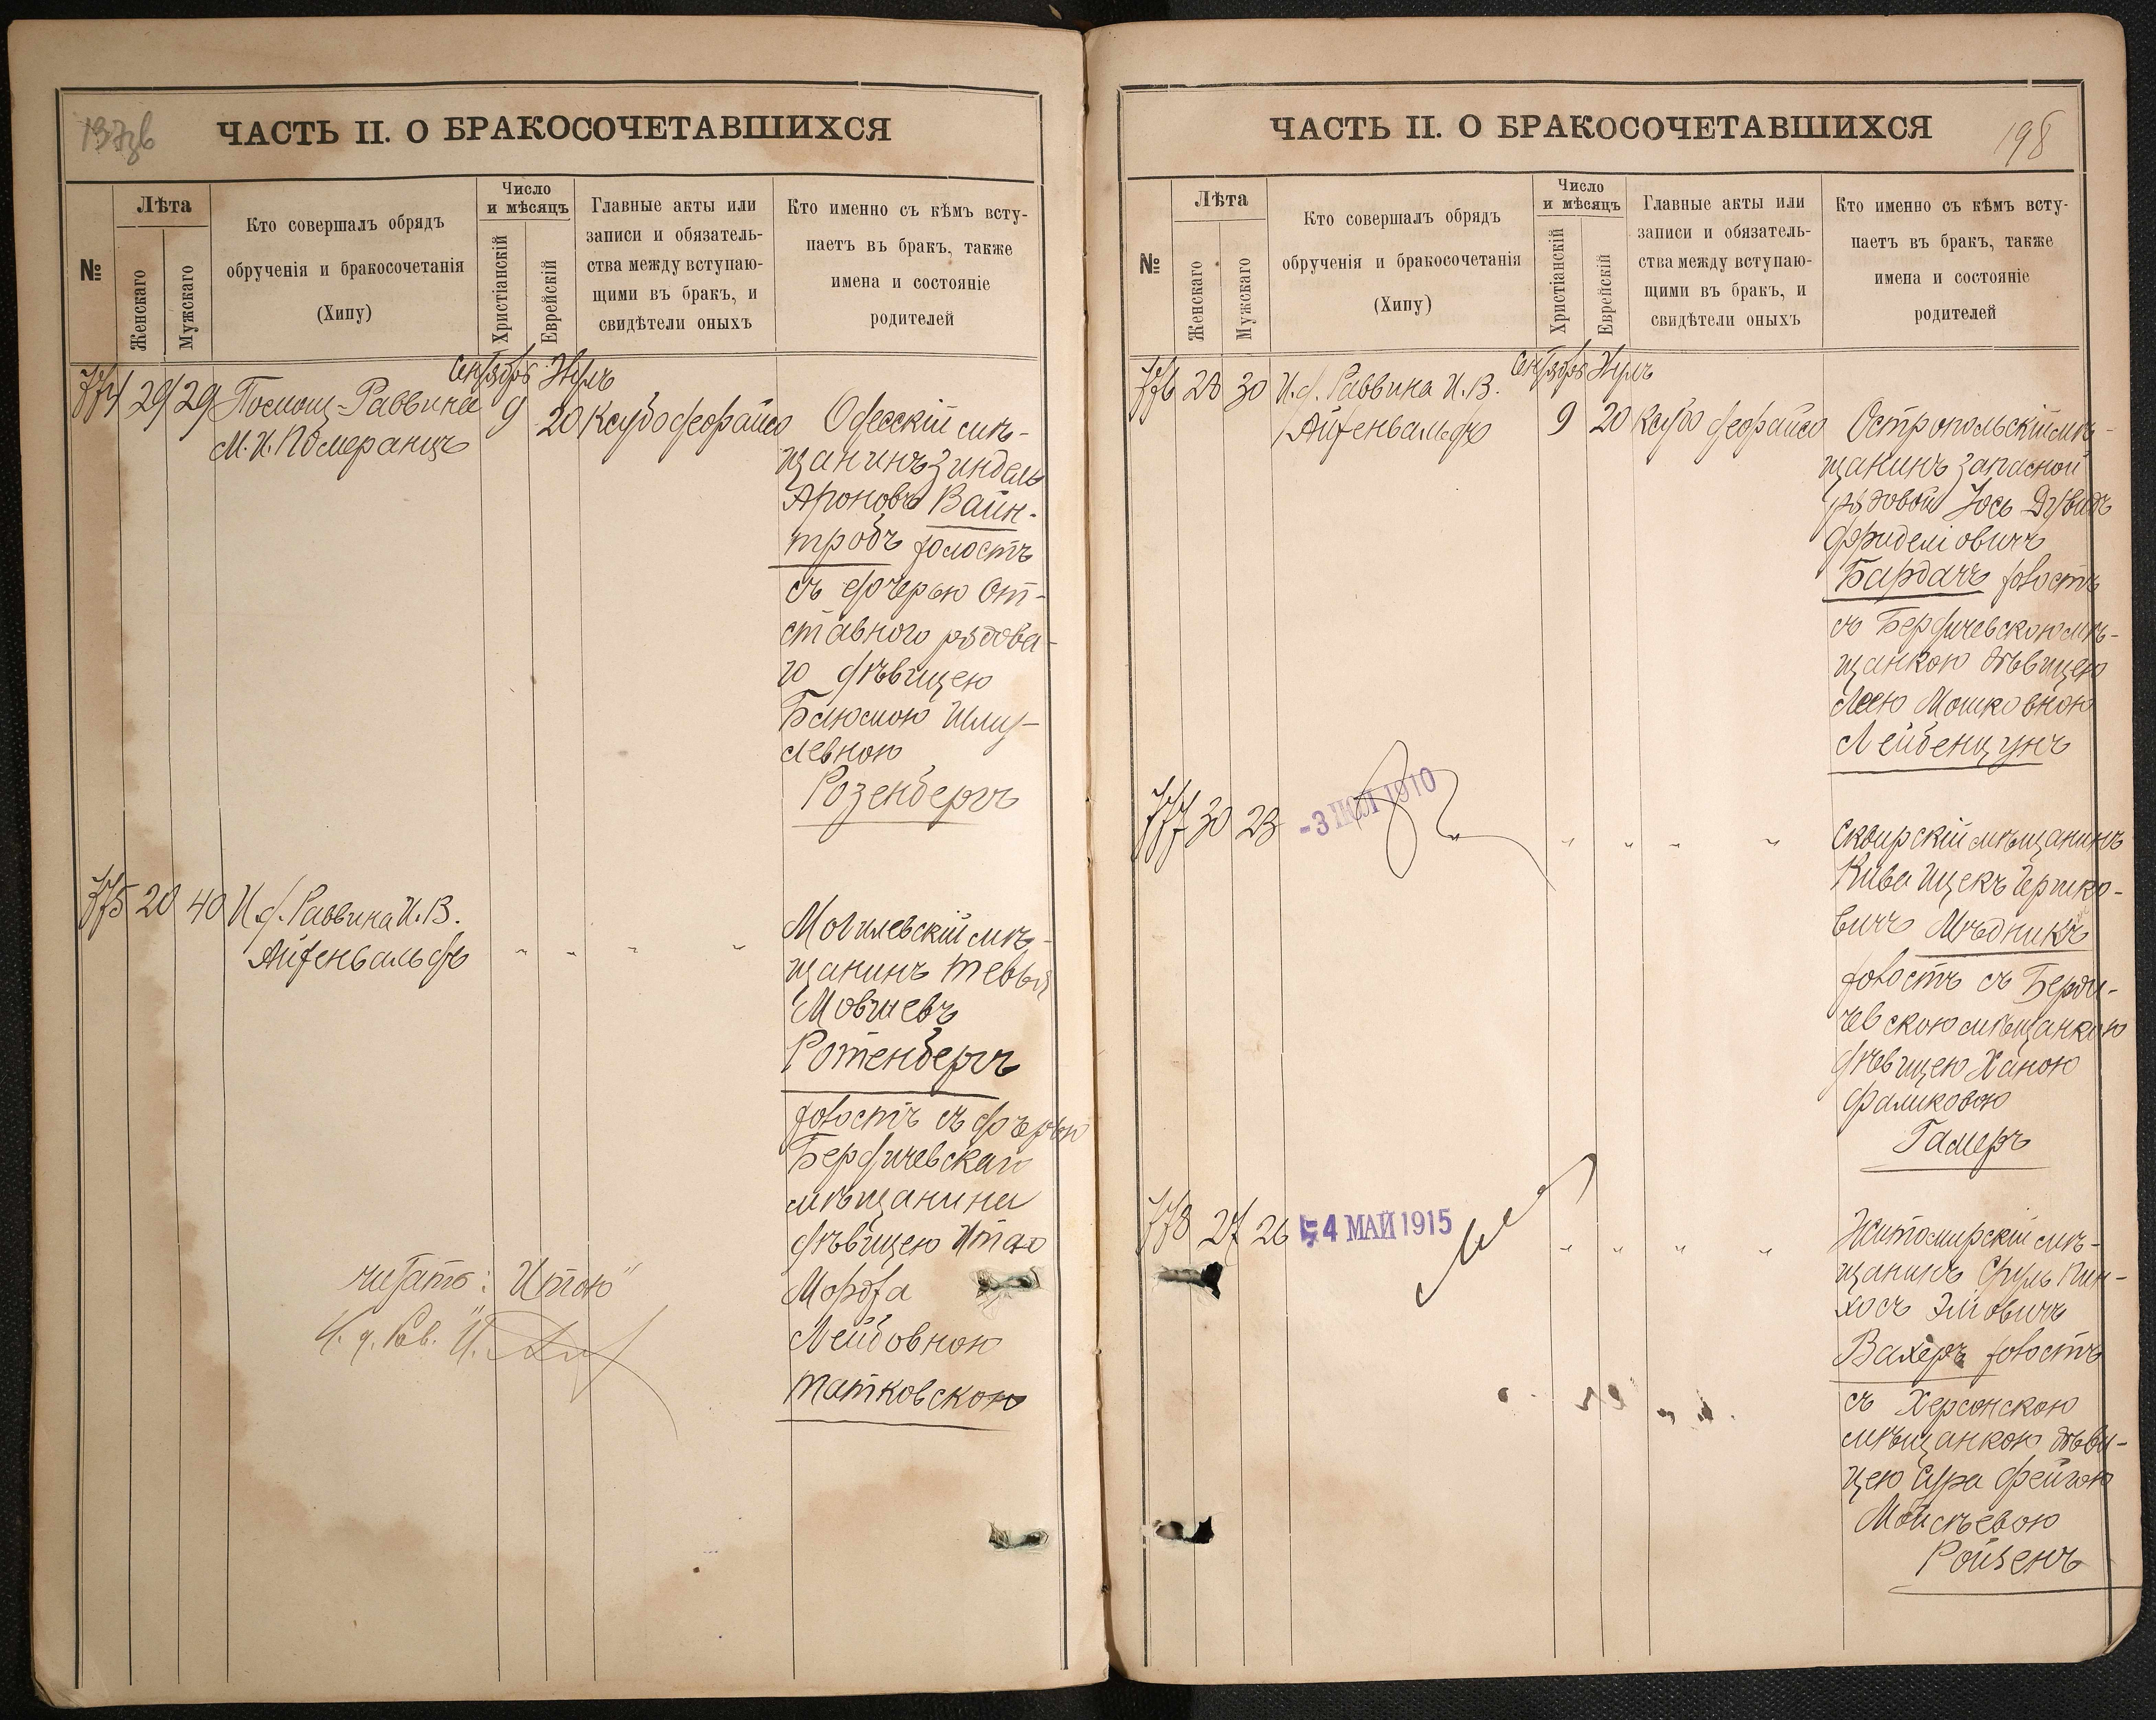 197зв
ЧАСТЬ II. О БРАКОСОЧЕТАВШИХСЯ
№
Лѣта
Женскаго
Мужскаго
Кто совершалъ обрядъ
обрученія и бракосочетанія
(Хипу)
Число
и мѣсяцъ
Христіанскій
Еврейскій
Главные акты или
записи и обязатель-
ства между вступаю-
щими въ бракъ, и
свидѣтели оныхъ
Кто именно съ кѣмъ всту-
паетъ въ бракъ, также
имена и состояніе
родителей
774 29 29 Помощ-Раввина
М.И. Померанцъ
Сентябрь
9
20
Одесскій мѣ-
щанинъ Зиндель
Ароновъ Вайн-
тробъ холостъ
съ дочерью От-
ставного рядова-
го дѣвицею
Блюмою Шму-
левною
Розенбергъ
775 20 40 И.д. Раввина И.В.
Айзенвальдъ
" " " "
Могилевскій мѣ-
щанинъ Тевья
Мовшевъ
Ротенбергъ
холостъ съ дочерью
Бердичевскаго
мѣщанина
дѣвицею Итою
Мордха
Лейбовною
Татковскою
читать: "Итою"
И. д. Рав. И.
198
ЧАСТЬ II. О БРАКОСОЧЕТАВШИХСЯ
№
Лѣта
Женскаго
Мужскаго
Кто совершалъ обрядъ
обрученія и бракосочетанія
(Хипу)
Число
и мѣсяцъ
Христіанскій
Еврейскій
Главные акты или
записи и обязатель-
ства между вступаю-
щими въ бракъ, и
свидѣтели оныхъ
Кто именно съ кѣмъ всту-
паетъ въ бракъ, также
имена и состояніе
родителей
776 28 30 И.д. Раввина И.В.
Айзенвальдъ
Сентябрь
9
20
Остропольскій мѣ-
щанинъ запасной
рядовой Іось Дувидъ
Фриделіовичъ
Бардачъ холостъ
съ Бердичевскою мѣ-
щанкою дѣвицею
Леею Мошковною
Лейбенцунъ
777 30 23
-3 ІЮЛ 1910
" " " "
Сквирскій мѣщанинъ
Кива Ицекъ Гершко-
вичъ Мѣдникъ
холостъ съ Берди-
чевскою мѣщанкою
дѣвицею Ханою
Фаликовою
Гамеръ
778 27 26
4 МАЙ 1915
" " " "
Житомирскій мѣ-
щанинъ Сруль Пин-
хосъ Эліовичъ
Вахеръ холостъ
съ Херсонскою
мѣщанкою дѣви-
цею Сура Фейгою
Моисѣевою
Ройзенъ